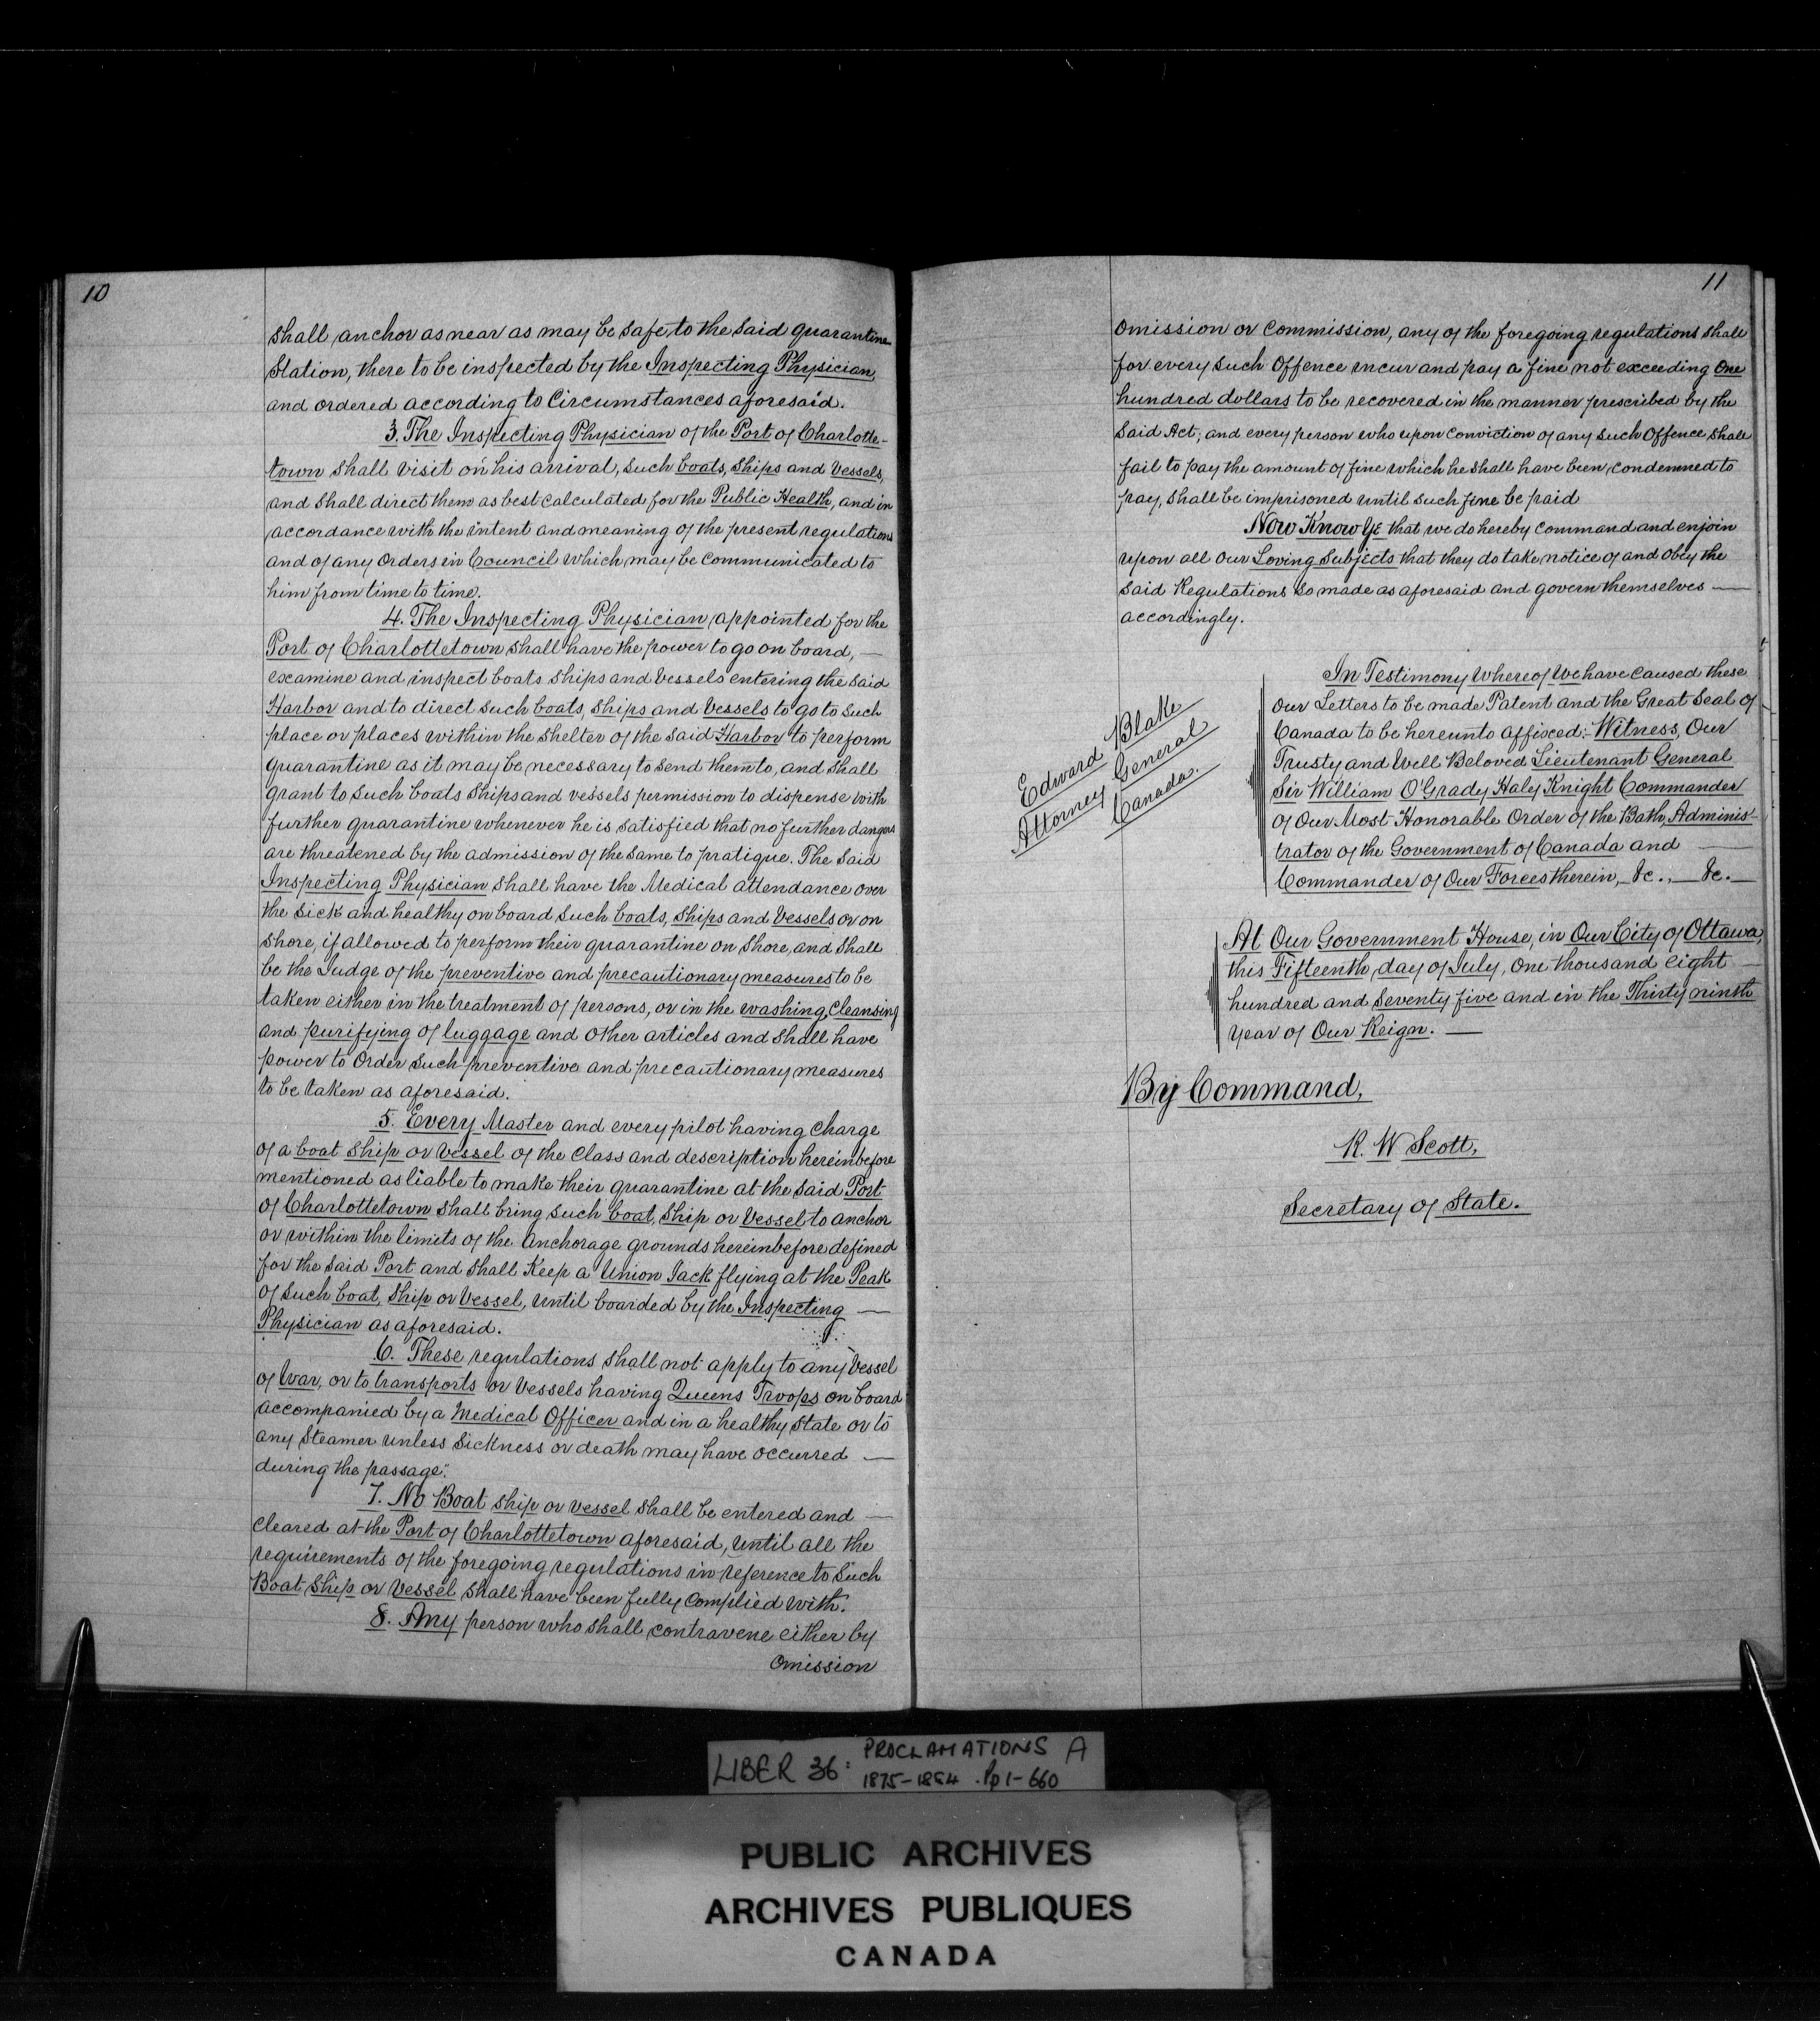 10
shall anchor as near as may be safe to the said quarantine
Station, there to be inspected by the Inspecting Physician,
and ordered according to Circumstances aforesaid.
3. The Inspecting Physician of the Port of Charlotte-
town shall visit on his arrival, such boats, ships and vessels,
and shall direct them as best calculated for the Public Health, and in
accordance with the intent and meaning of the present regulations
and of any Orders in Council which may be communicated to
him from time to time.
4. The Inspecting Physician appointed for the
Port of Charlottetown shall have the power to go on board, —
examine and inspect boats ships and vessels entering the said
Harbor and to direct such boats, ships and vessels to go to such
place or places within the shelter of the said Harbor to perform
quarantine as it may be necessary to send them to, and shall
grant to such boats ships and vessels permission to dispense with
further quarantine whenever he is satisfied that no further dangers
are threatened by the admission of the same to pratique. The said
Inspecting Physician shall have the Medical attendance over
the sick and healthy on board such boats, ships and vessels or on
shore, if allowed to perform their quarantine on shore, and shall
be the Judge of the preventive and precautionary measures to be
taken either in the treatment of persons, or in the washing, cleansing
and purifying of luggage and other articles and shall have
power to Order such preventive and precautionary measures
to be taken as aforesaid.
5. Every Master and every pilot having charge
of a boat ship or vessel of the class and description hereinbefore
mentioned as liable to make their quarantine at the said Port
of Charlottetown shall bring such boat, ship or vessel to anchor
or within the limits of the Anchorage grounds hereinbefore defined
for the said Port and shall Keep a Union Jack flying at the Peak
of such boat, ship or vessel, until boarded by the Inspecting —
Physician as aforesaid.
6. These regulations shall not apply to any vessel
of War, or to transports or vessels having Queens Troops on board
accompanied by a Medical Officer and in a healthy state or to
any Steamer unless sickness or death may have occurred —
during the passage".
7. No Boat ship or vessel shall be entered and —
cleared at the Port of Charlottetown aforesaid, until all the
requirements of the foregoing regulations in reference to such
Boat ship or vessel shall have been fully complied with.
8. Any person who shall contravene either by
Omission
11
Omission or Commission, any of the foregoing regulations shall
for every such Offence incur and pay a fine not exceeding One
hundred dollars to be recovered in the manner prescribed by the
said Act; and every person who upon conviction of any such Offence shall
fail to pay the amount of fine which he shall have been condemned to
pay, shall be imprisoned until such fine be paid
Now Know Ye that we do hereby command and enjoin
upon all Our Loving Subjects that they do take notice of and obey the
said Regulations so made as aforesaid and govern themselves —
accordingly.
In Testimony Whereof We have caused these
Our Letters to be made Patent and the Great Seal of
Canada to be hereunto affixed:- Witness, Our
Trusty and Well Beloved Lieutenant General
Sir William O'Grady Haly Knight Commander
of Our Most Honorable Order of the Bath, Adminis-
trator of the Government of Canada and —
Commander of Our Forces therein, &c., — &c. —
Edward Blake
Attorney General
Canada.
At Our Government House, in Our City of Ottawa,
this Fifteenth day of July, One thousand eight —
hundred and seventy five and in the Thirty ninth
year of Our Reign. —
By Command,
R. W Scott,
Secretary of State.
LIBER 36: PROCLAMATIONS A
1875-1884 . Pp 1-660
PUBLIC ARCHIVES
ARCHIVES PUBLIQUES
CANADA